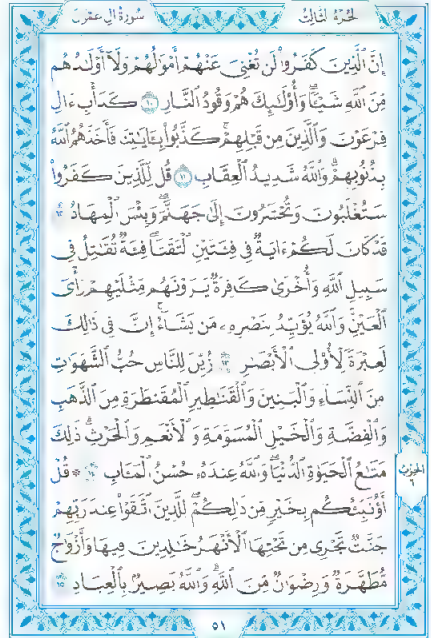 الجزء الثالث سورة آل عمران
إِنَّ ٱلَّذِينَ كَفَرُوا۟ لَن تُغْنِىَ عَنْهُمْ أَمْوَٰلُهُمْ وَلَآ أَوْلَٰدُهُم
مِّنَ ٱللَّهِ شَيْـًٔا وَأُو۟لَٰٓئِكَ هُمْ وَقُودُ ٱلنَّارِ ١٠ كَدَأْبِ ءَالِ
فِرْعَوْنَ وَٱلَّذِينَ مِن قَبْلِهِمْ كَذَّبُوا۟ بِـَٔايَٰتِنَا فَأَخَذَهُمُ ٱللَّهُ
بِذُنُوبِهِمْ وَٱللَّهُ شَدِيدُ ٱلْعِقَابِ ١١ قُل لِّلَّذِينَ كَفَرُوا۟
سَتُغْلَبُونَ وَتُحْشَرُونَ إِلَىٰ جَهَنَّمَ وَبِئْسَ ٱلْمِهَادُ ١٢
قَدْ كَانَ لَكُمْ ءَايَةٌ فِى فِئَتَيْنِ ٱلْتَقَتَا فِئَةٌ تُقَٰتِلُ فِى
سَبِيلِ ٱللَّهِ وَأُخْرَىٰ كَافِرَةٌ يَرَوْنَهُم مِّثْلَيْهِمْ رَأْىَ
ٱلْعَيْنِ وَٱللَّهُ يُؤَيِّدُ بِنَصْرِهِۦ مَن يَشَآءُ إِنَّ فِى ذَٰلِكَ
لَعِبْرَةً لِّأُو۟لِى ٱلْأَبْصَٰرِ ١٣ زُيِّنَ لِلنَّاسِ حُبُّ ٱلشَّهَوَٰتِ
مِنَ ٱلنِّسَآءِ وَٱلْبَنِينَ وَٱلْقَنَٰطِيرِ ٱلْمُقَنطَرَةِ مِنَ ٱلذَّهَبِ
وَٱلْفِضَّةِ وَٱلْخَيْلِ ٱلْمُسَوَّمَةِ وَٱلْأَنْعَٰمِ وَٱلْحَرْثِ ذَٰلِكَ
مَتَٰعُ ٱلْحَيَوٰةِ ٱلدُّنْيَا وَٱللَّهُ عِندَهُۥ حُسْنُ ٱلْمَـَٔابِ ١٤ ۞ قُلْ
أَؤُنَبِّئُكُم بِخَيْرٍ مِّن ذَٰلِكُمْ لِلَّذِينَ ٱتَّقَوْا۟ عِندَ رَبِّهِمْ
جَنَّٰتٌ تَجْرِى مِن تَحْتِهَا ٱلْأَنْهَٰرُ خَٰلِدِينَ فِيهَا وَأَزْوَٰجٌ
مُّطَهَّرَةٌ وَرِضْوَٰنٌ مِّنَ ٱللَّهِ وَٱللَّهُ بَصِيرٌۢ بِٱلْعِبَادِ ١٥
الحزب
٦
٥١